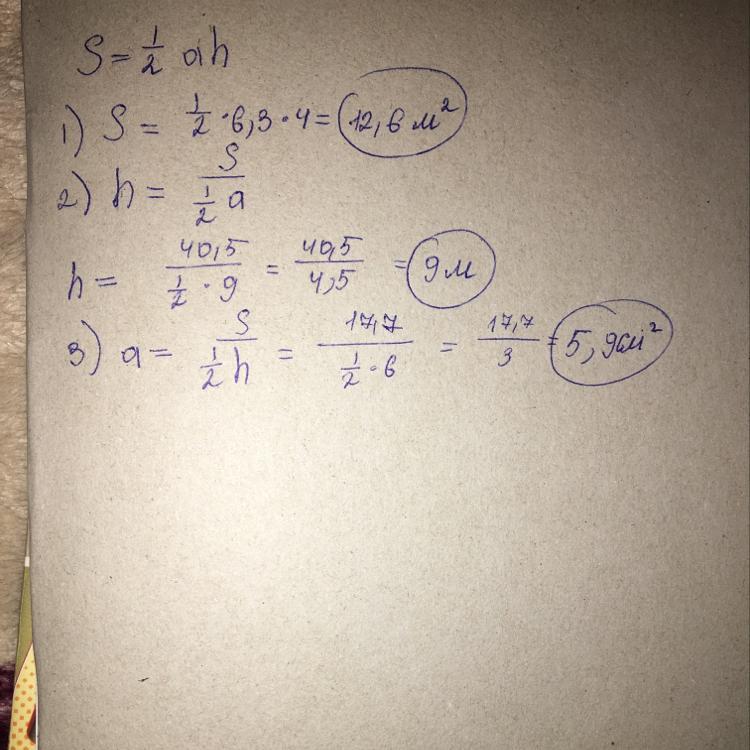 S = 1/2 ah
1) S = 1/2 · 6,3 · 4 = 12,6 м²
2) h = S / (1/2 a)
h = 40,5 / (1/2 · 9) = 40,5 / 4,5 = 9 м
3) a = S / (1/2 h) = 17,7 / (1/2 · 6) = 17,7 / 3 = 5,9 см²